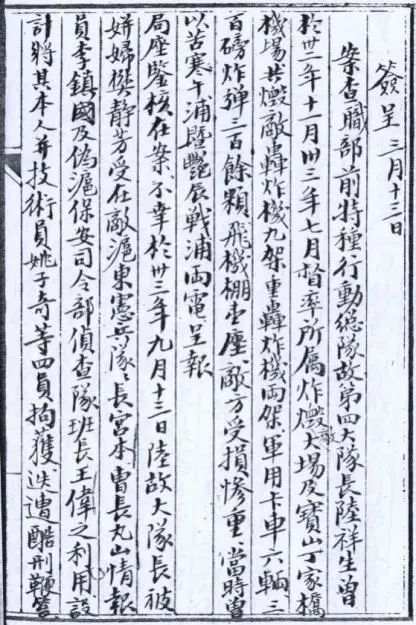 簽呈 三月十三日
案查職部前特種行動總隊故第四大隊長陸祥生曾
於卅二年十一月卅三年七月督率所属炸燬大場及寶山丁家橋
機場共燬敵轟炸機九架重轟炸機両架軍用卡車六輛三
百磅炸弹三百餘顆飛機棚壹座敵方受損慘重當時曾
以苦寒午浦暨艷辰戰浦両電呈報
局座鑒核在案不幸於卅三年九月十三日陸故大隊長被
姘婦樊静芳受在敵滬東憲兵隊、長宮本曹長丸山情報
員李鎮國及偽滬保安司令部偵查隊班長王偉之利用設
計將其本人并技術員姚子奇等四員拘獲迭遭酷刑鞭笞